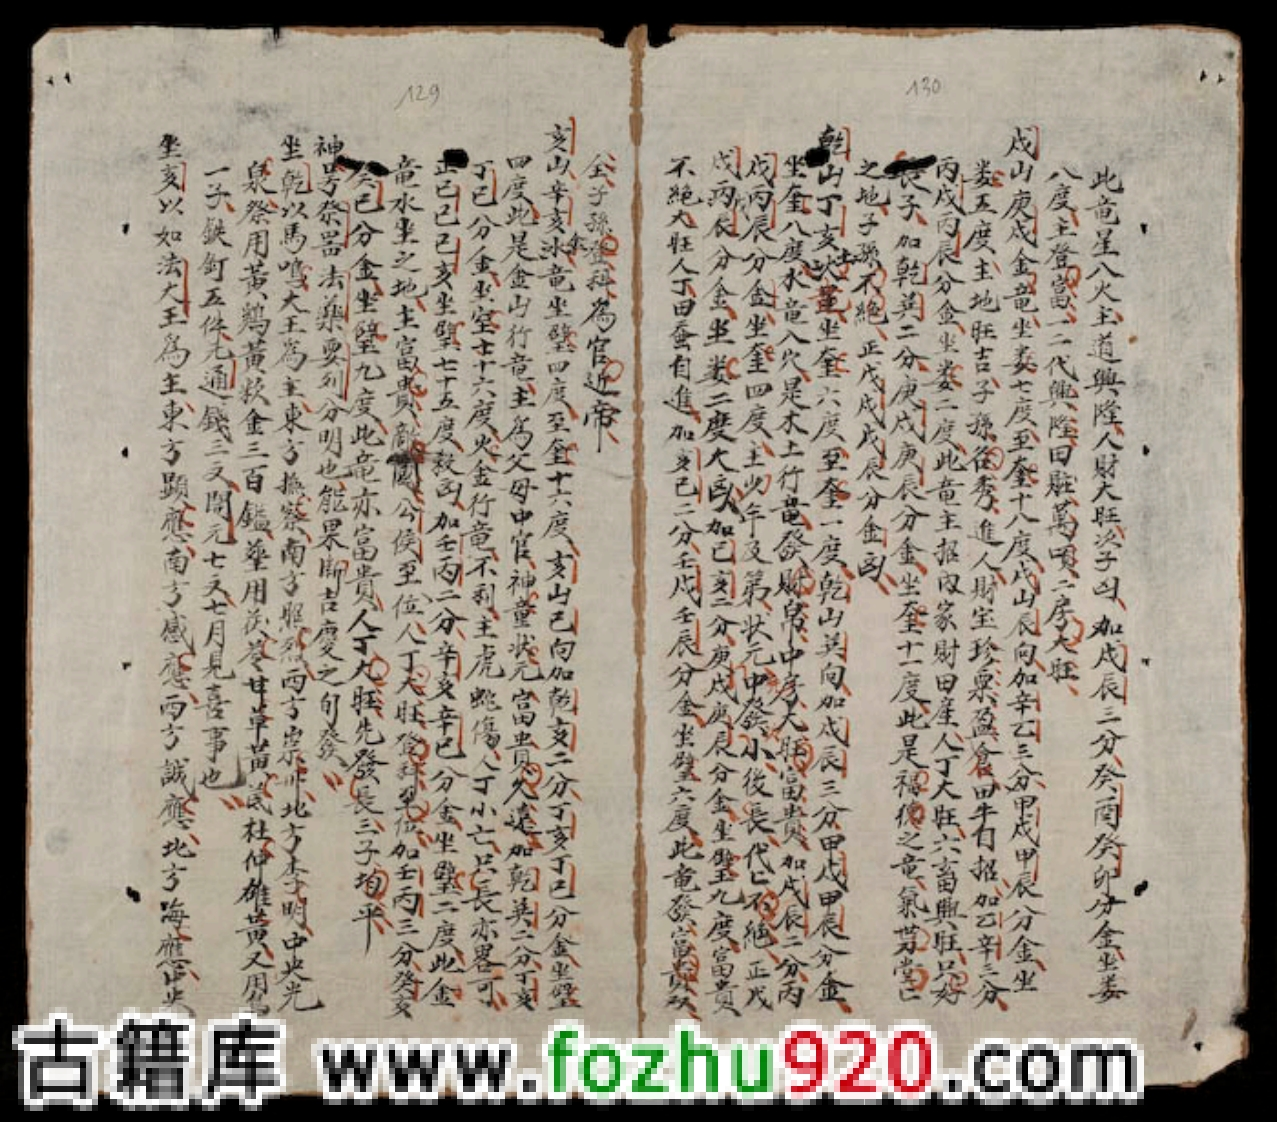 130
此竜星八火主道興隆人財大旺次子凶加戊辰三分癸酉癸卯分金坐婁
八度主登富一二代興隆田庄萬頃二房大旺
戌山庚戌金竜坐婁七度至奎十八度戌山辰向加辛乙三分甲戌甲辰分金坐
婁五度主地旺吉子孫谷秀進人財宝珍粟盈倉田牛自招加乙辛三分
丙戌丙辰分金坐婁二度此竜主招內家財田産人丁大旺六畜興旺只好
長子加乾巽二分庚戌庚辰分金坐奎十一度此是福德之竜氣
之地子孫不絕正戊戌戊辰分金凶
乾山丁亥坐奎六度至奎一度乾山巽向加戌辰三分甲戌甲辰分金
坐奎八度水竜入穴是木土行竜發財帛中房大旺富貴加戌辰二分丙
戌丙辰分金坐奎四度主少年及第狀元中發小後長代亡不絕正戊
戌丙辰分金坐婁二度大凶加己亥二分庚戌庚辰分金坐璧九度富貴
不絕大旺人丁田蚕自進加亥己二分壬戌壬辰分金坐璧六度此竜發富
129
全子孫登科為官近帝
亥山辛亥水竜坐璧四度至奎十六度亥山巳向加乾亥二分丁亥丁巳分金坐璧
四度此是金山行竜主為父母中官神童狀元富貴久遠加乾巽二分丁亥
丁巳分金坐室士十六度火金行竜不利主虎蛇傷人丁小亡只長亦畧可
正己巳己亥坐璧七十五度敎凶加壬丙二分辛亥辛巳分金坐璧二度此金
竜水坐之地主富貴敵國公侯至位人丁大旺登科至位加壬丙三分癸亥
癸巳分金坐璧九度此竜亦富貴人丁大旺先發長三子均平
神呈祭器法藥要列分明也能果斷吉慶之自發
坐乾以馬鳴大王為主東方撫察南方照烈西方崇北方李明中央光
泉祭用黃鷄黃欸金三百鎰藥用茯苓甘草黃芪杜仲雄黃又用
一子鉄釘五件元通錢三文開元七文七月見喜事也
坐亥以如法大王為主東方顯應南方感應西方誠應北方海應中央
古籍库 www.fozhu920.com